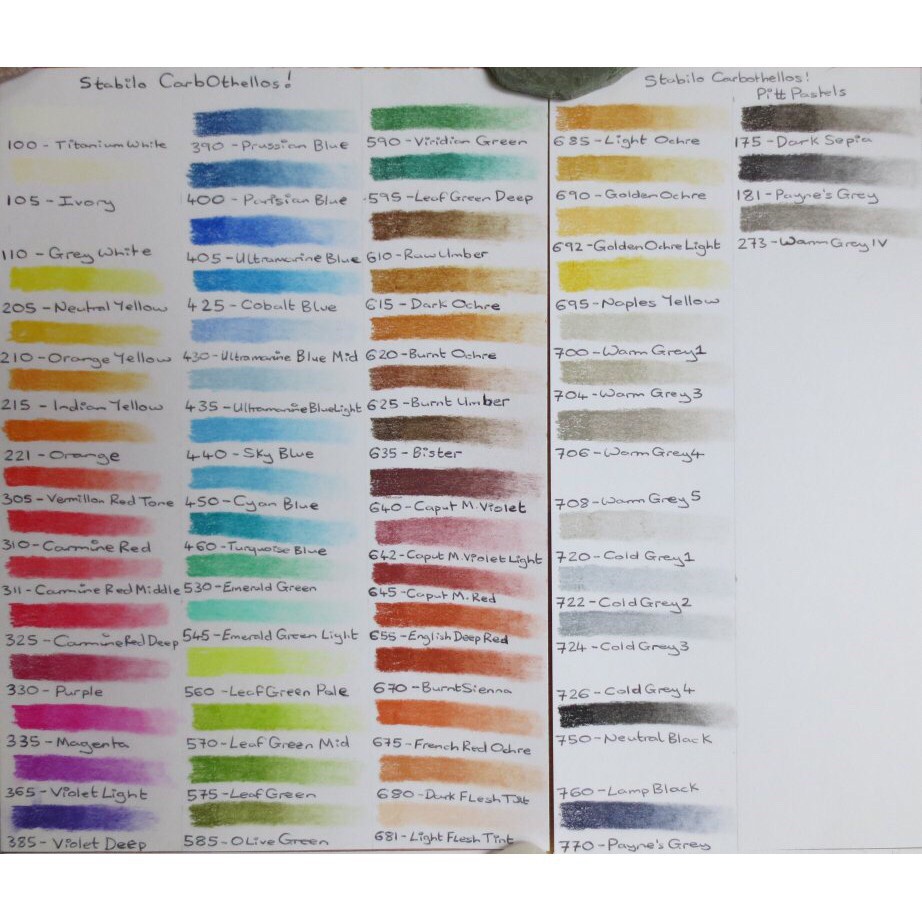 Stabilo CarbOthellos!
100 - Titanium White
105 - Ivory
110 - Grey White
205 - Neutral Yellow
210 - Orange Yellow
215 - Indian Yellow
221 - Orange
305 - Vermillon Red Tone
310 - Carmine Red
311 - Carmine Red Middle
325 - Carmine Red Deep
330 - Purple
335 - Magenta
365 - Violet Light
385 - Violet Deep
390 - Prussian Blue
400 - Parisian Blue
405 - Ultramarine Blue
425 - Cobalt Blue
430 - Ultramarine Blue Mid
435 - Ultramarine Blue Light
440 - Sky Blue
450 - Cyan Blue
460 - Turquoise Blue
530 - Emerald Green
545 - Emerald Green Light
560 - Leaf Green Pale
570 - Leaf Green Mid
575 - Leaf Green
585 - Olive Green
590 - Viridian Green
595 - Leaf Green Deep
610 - Raw Umber
615 - Dark Ochre
620 - Burnt Ochre
625 - Burnt Umber
635 - Bister
640 - Caput M. Violet
642 - Caput M. Violet Light
645 - Caput M. Red
655 - English Deep Red
670 - Burnt Sienna
675 - French Red Ochre
680 - Dark Flesh Tint
681 - Light Flesh Tint
Stabilo Carbothellos!
685 - Light Ochre
690 - Golden Ochre
692 - Golden Ochre Light
695 - Naples Yellow
700 - Warm Grey 1
704 - Warm Grey 3
706 - Warm Grey 4
708 - Warm Grey 5
720 - Cold Grey 1
722 - Cold Grey 2
724 - Cold Grey 3
726 - Cold Grey 4
750 - Neutral Black
760 - Lamp Black
770 - Payne's Grey
Pitt Pastels
175 - Dark Sepia
181 - Payne's Grey
273 - Warm Grey IV